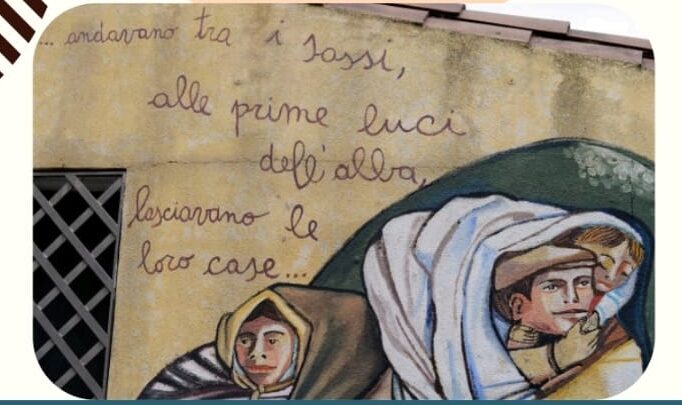 ... andavano tra i sassi,
alle prime luci
dell'alba,
lasciavano le
loro case...